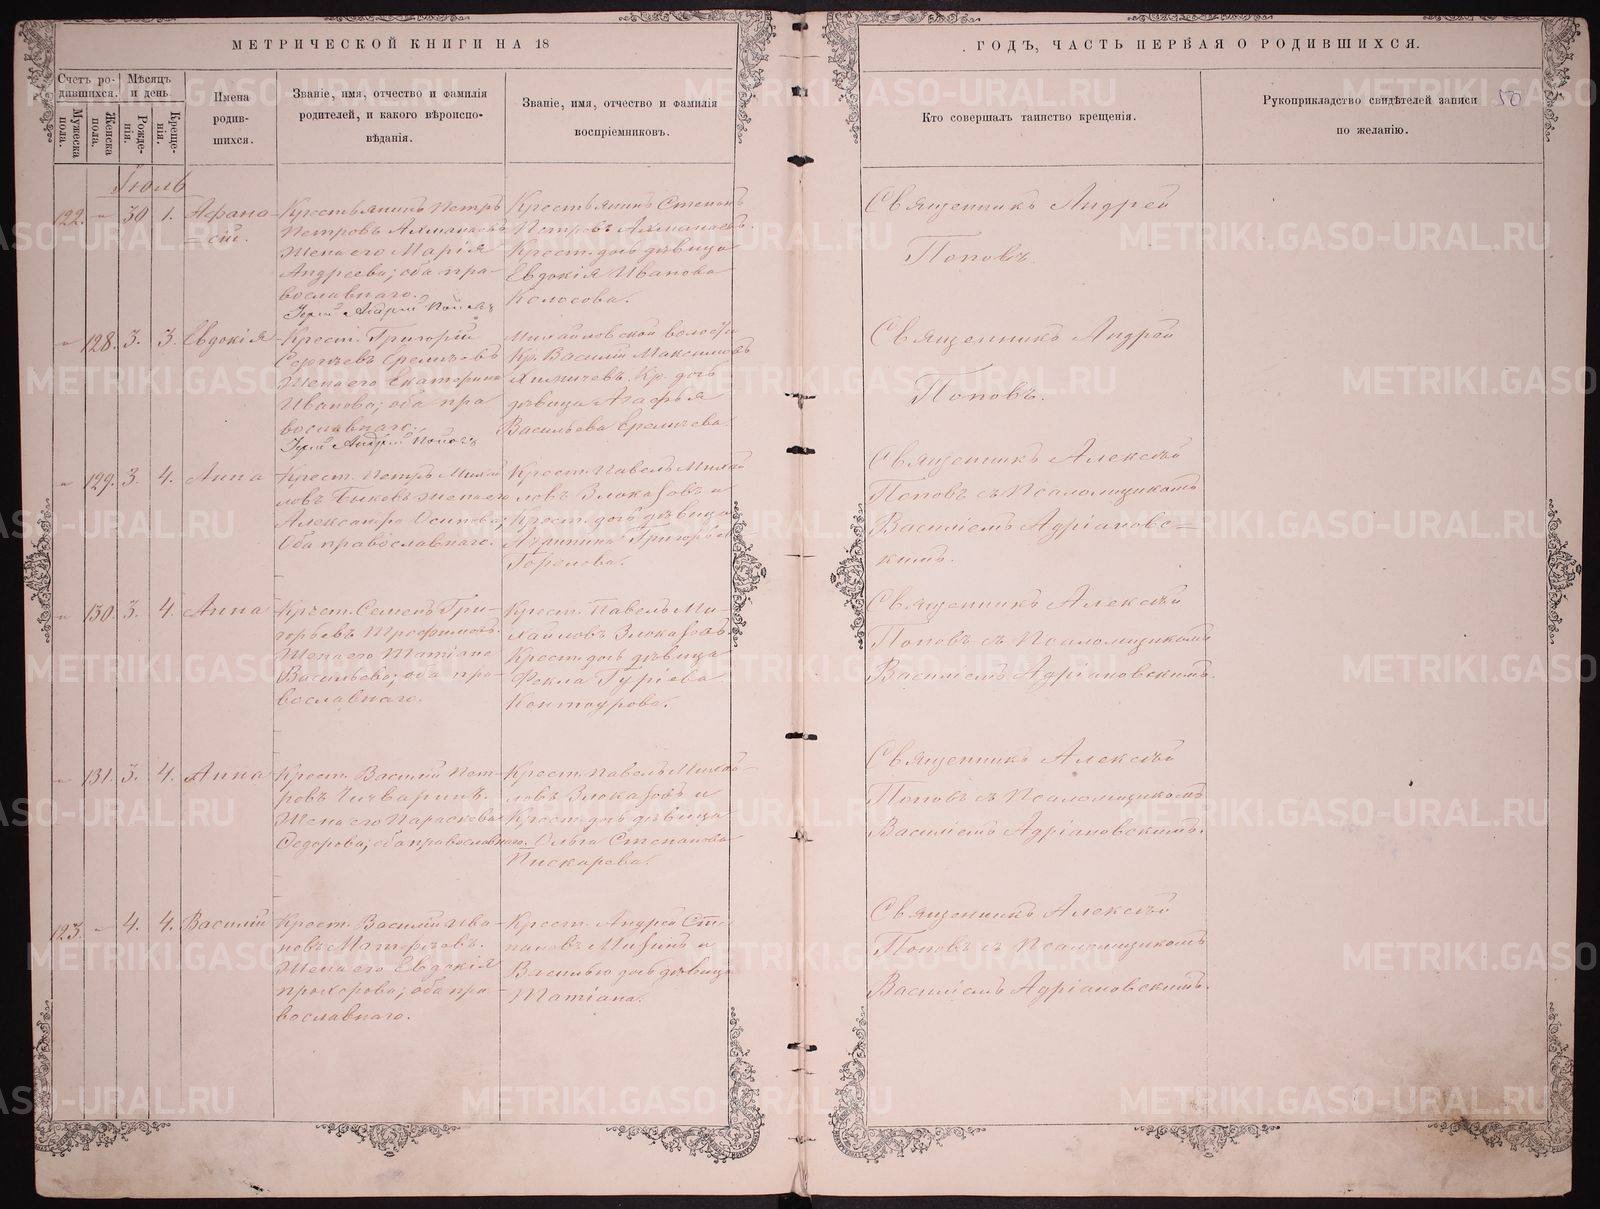 МЕТРИЧЕСКОЙ КНИГИ НА 18
Счетъ ро-
дившихся.
Мужеска
пола.
Женска
пола.
Мѣсяцъ
и день
Рожде-
нія.
Креще-
нія.
Имена
родив-
шихся.
Званіе, имя, отчество и фамилія
родителей, и какого вѣроиспо-
вѣданія.
Званіе, имя, отчество и фамилія
воспріемниковъ.
Іюль
122. 30 1.
Афана-
сій.
Крестьянинъ Петръ
Петровъ
Жена его Марія
Андреева; оба пра-
вославнаго.
Крестьянинъ Степанъ
Петровъ
Крест. дочь дѣвица
Евдокія Иванова
Колосова.
128. 3. 3. Евдокія
Крест. Григорій
Жена его Екатерина
Иванова; оба пра
вославнаго.
Михайловской волости
Кр. Василій Максимовъ
Кр. дочь
дѣвица Агафья
Васильева
129. 3. 4. Анна
Крест. Петръ Михай
ловъ Быковъ Жена его
Александра Осипова;
Оба православнаго.
Крест. Павелъ Михай
ловъ Злоказовъ и
Крест. дочь дѣвица
Григорьева
Горелова.
130. 3. 4. Анна
Крест. Семенъ Гри-
горьевъ Трофимовъ.
Жена его Татіана
Васильева; оба пра-
вославнаго.
Крест. Павелъ Ми-
хайловъ Злоказовъ
Крест. дочь дѣвица
Фекла Гуріева
131. 3. 4. Анна
Крест. Василій Пет-
ровъ Чичваринъ.
Жена его Параскева
Федорова; оба православнаго.
Крест. Павелъ Михай-
ловъ Злоказовъ и
Крест. дочь дѣвица
Ольга Степанова
Пискарева.
123. 4. 4. Василій
Крест. Василій Ива-
новъ
Жена его Евдокія
Прохорова; оба пра-
вославнаго.
Крест. Андрей Сте-
пановъ и
дочь дѣвица
Татіана.
ГОДЪ, ЧАСТЬ ПЕРВАЯ О РОДИВШИХСЯ.
Кто совершалъ таинство крещенія.
Рукоприкладство свидѣтелей записи
по желанію.
50
Священникъ Андрей
Поповъ.
Священникъ Андрей
Поповъ.
Священникъ Алексѣй
Поповъ съ Псаломщикомъ
Василіемъ Адріановс-
кимъ.
Священникъ Алексѣй
Поповъ съ Псаломщикомъ
Василіемъ Адріановскимъ.
Священникъ Алексѣй
Поповъ съ Псаломщикомъ
Василіемъ Адріановскимъ.
Священникъ Алексѣй
Поповъ съ Псаломщикомъ
Василіемъ Адріановскимъ.
METRIKI.GASO-URAL.RU